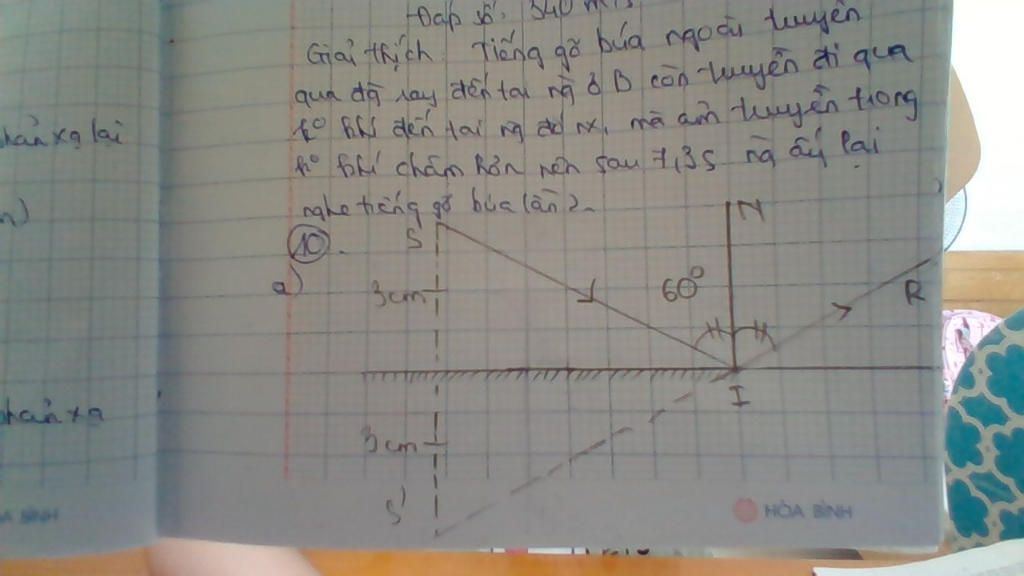 Đáp số: 340 m/s
Giải thích: Tiếng gõ búa ngoài truyền
qua đg ray đến tai ng ở B còn truyền đi qua
k° khí đến tai ng đó nx, mà âm truyền trong
k° khí chậm hơn nên sau 7,3s ng ấy lại
nghe tiếng gõ búa lần 2.
phản xạ lại
10.
S
N
a)
3cm
60°
R
I
phản xạ
3cm
S'
HÒA BÌNH
HÒA BÌNH